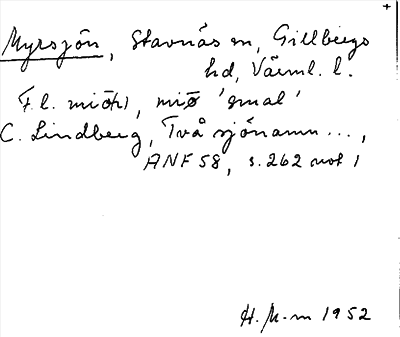 Myrsjön, Stavnäs sn, Gillbergs
hd, Värml. l.
F.l. miō(h), miø 'smal'
C. Lindberg, Två sjönamn ...,
ANF 58, s. 262 not 1
H. M-m 1952